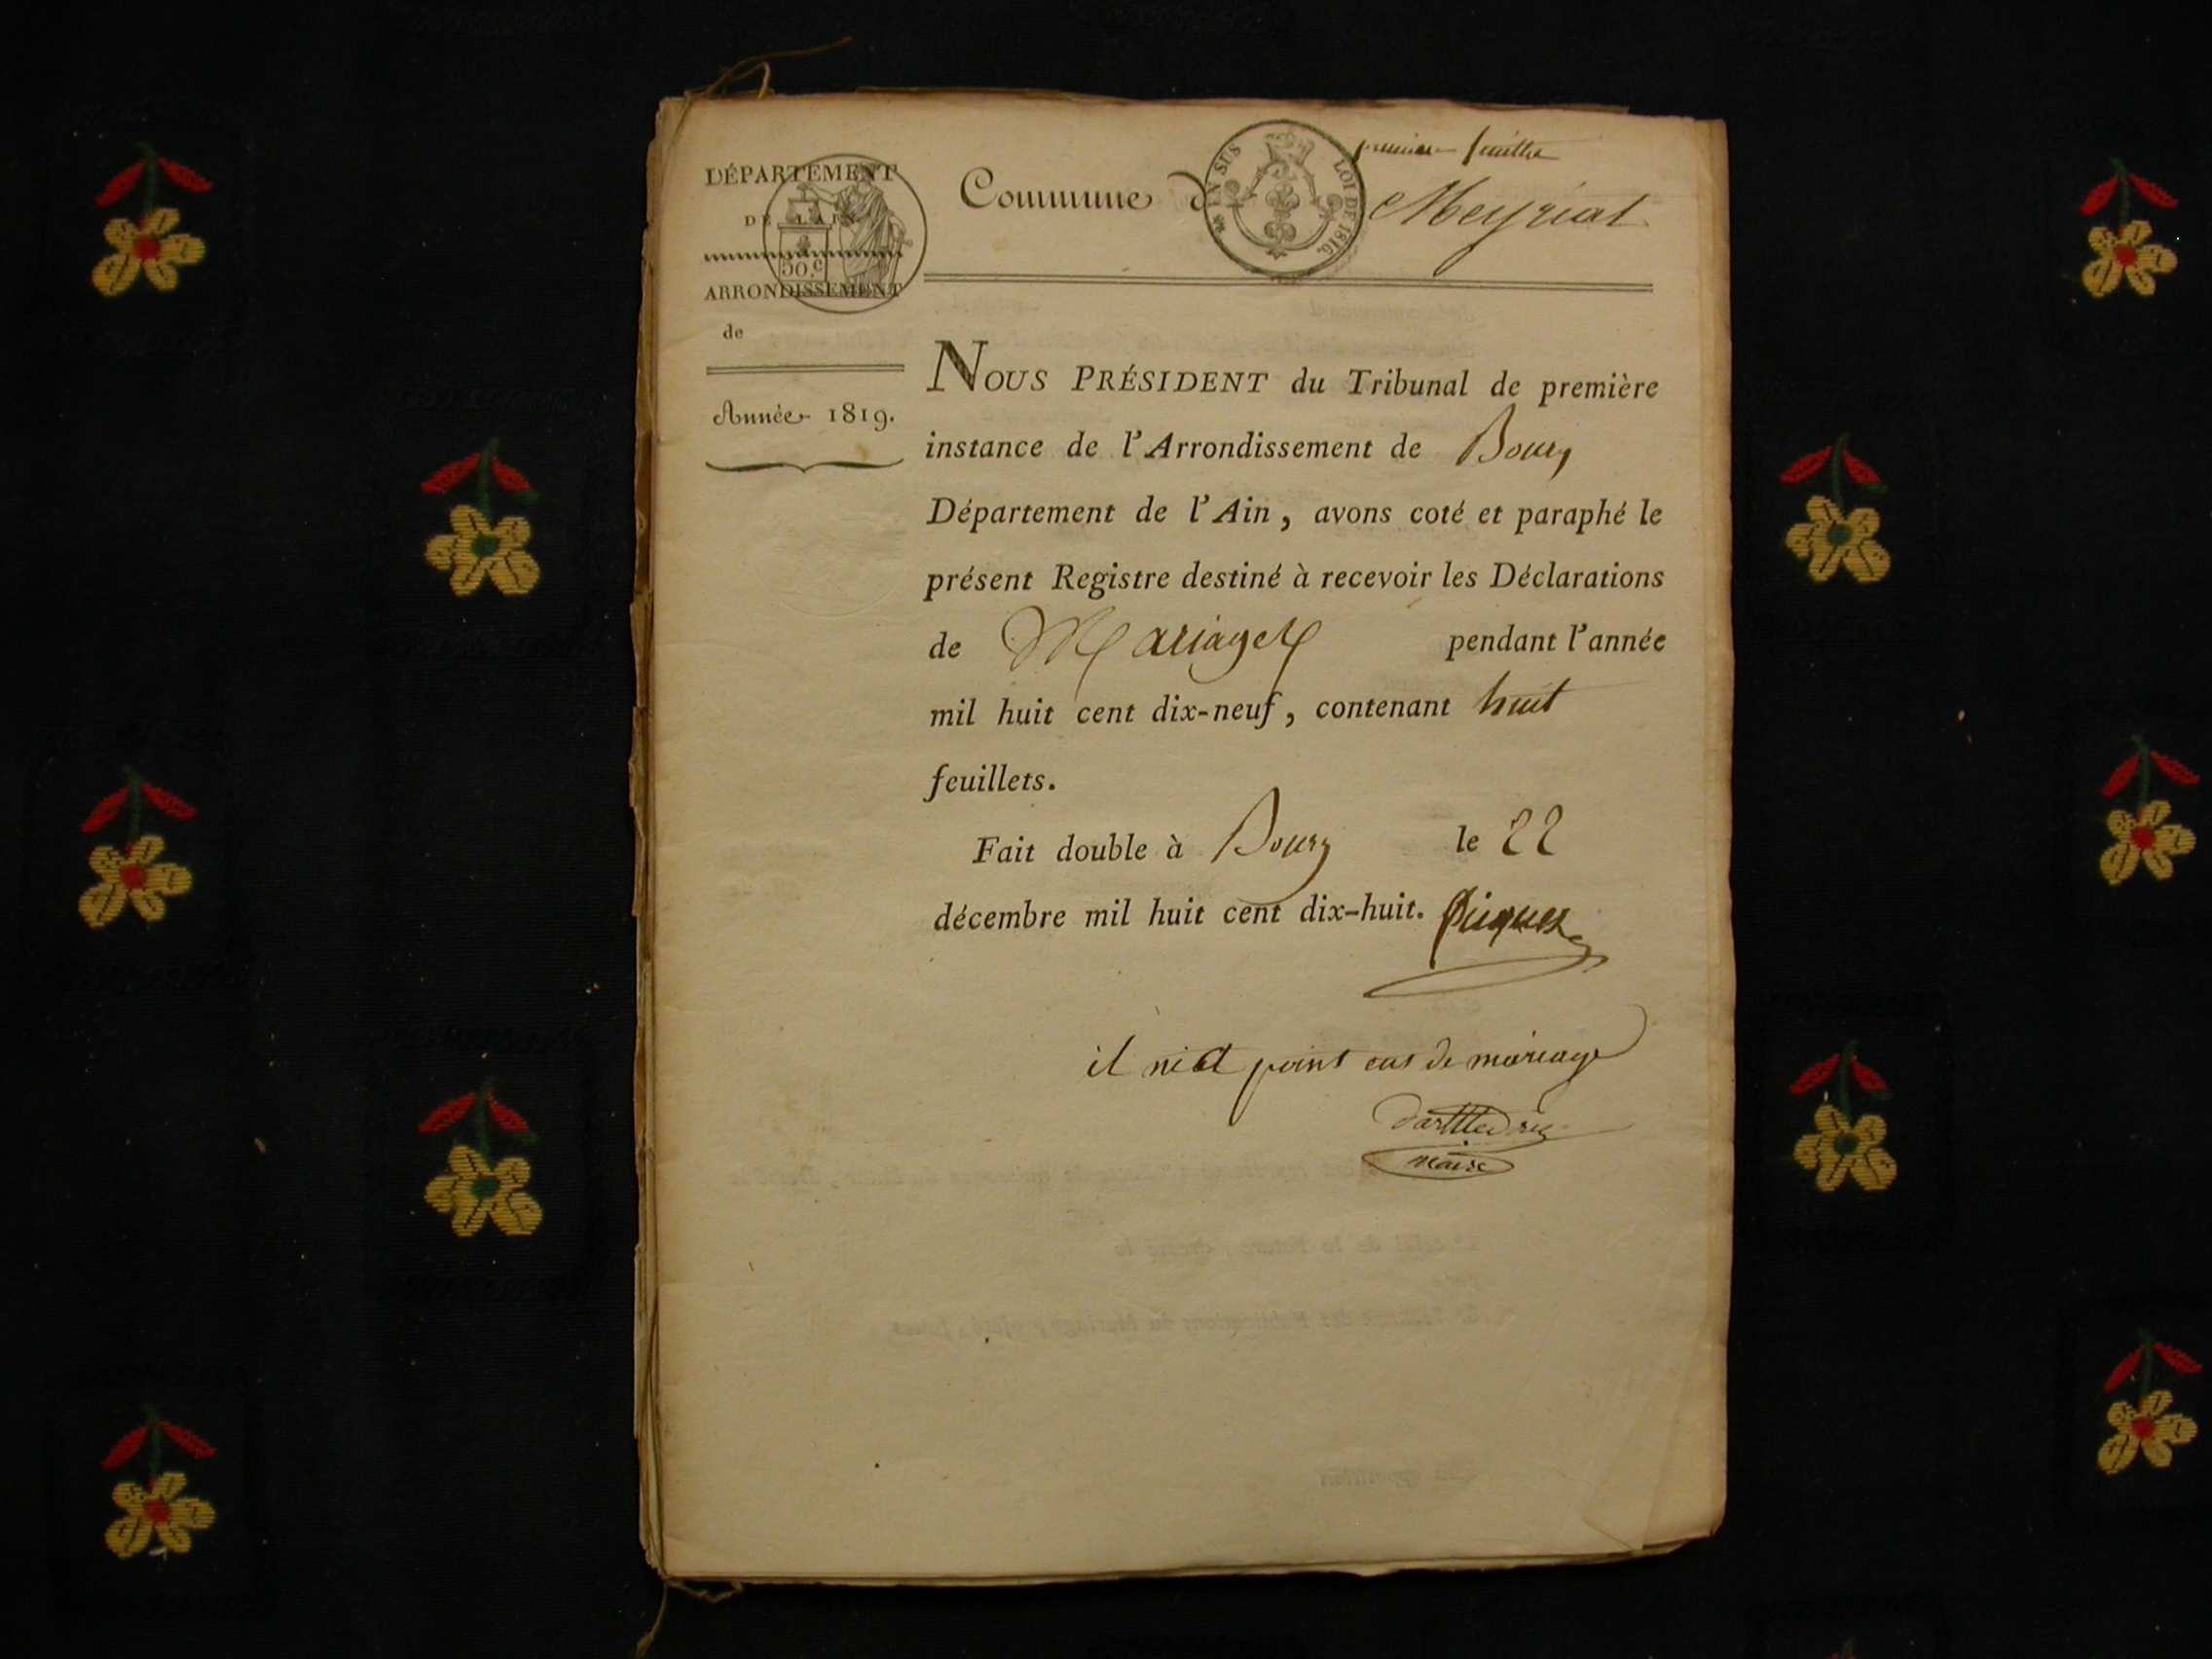 DÉPARTEMENT
DE L'AIN
50.c
ARRONDISSEMENT
de
Année 1819.
EN SUS LOI DE 1816.
premier feuillet
Commune de Meyriat
NOUS PRÉSIDENT du Tribunal de première
instance de l'Arrondissement de Bourg
Département de l'Ain, avons coté et paraphé le
présent Registre destiné à recevoir les Déclarations
de Mariages pendant l'année
mil huit cent dix-neuf, contenant huit
feuillets.
Fait double à Bourg le 22
décembre mil huit cent dix-huit.
il ni a point eut de mariage
maire